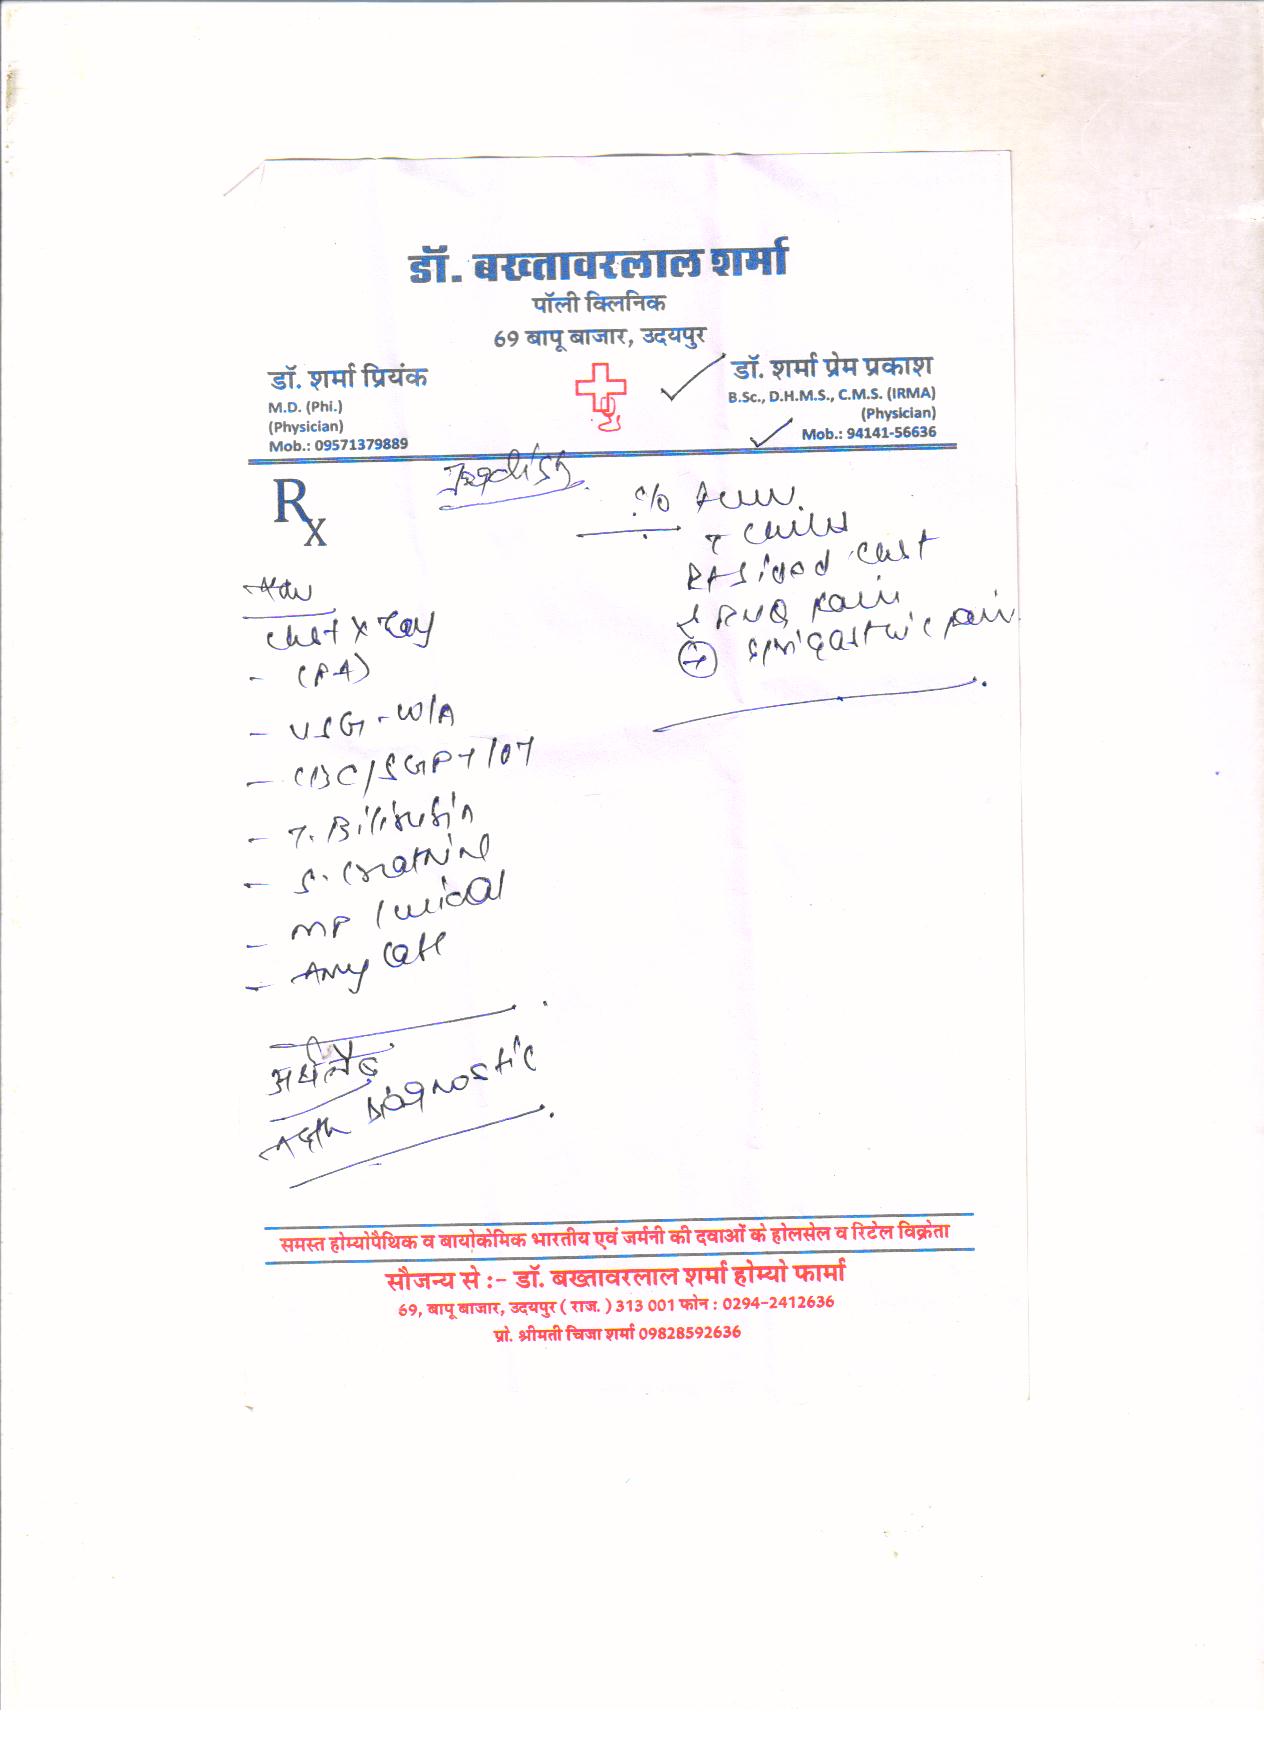 डॉ. बख्तावरलाल शर्मा
पॉली क्लिनिक
69 बापू बाजार, उदयपुर
डॉ. शर्मा प्रियंक
M.D. (Phi.)
(Physician)
Mob.: 09571379889
डॉ. शर्मा प्रेम प्रकाश
B.Sc., D.H.M.S., C.M.S. (IRMA)
(Physician)
Mob.: 94141-56636
Jagdish
Rx
c/o
chills
RUQ Pain
+ epigastric pain
Adv
Chest X Ray
- (PA)
- USG - W/A
- CBC/SGPT/OT
- T. Bilirubin
- S. Creatnine
- MP / widal
-
Diagnostic
समस्त होम्योपैथिक व बायोकेमिक भारतीय एवं जर्मनी की दवाओं के होलसेल व रिटेल विक्रेता
सौजन्य से :- डॉ. बख्तावरलाल शर्मा होम्यो फार्मा
69, बापू बाजार, उदयपुर ( राज. ) 313 001 फोन : 0294-2412636
प्रो. श्रीमती चिजा शर्मा 09828592636